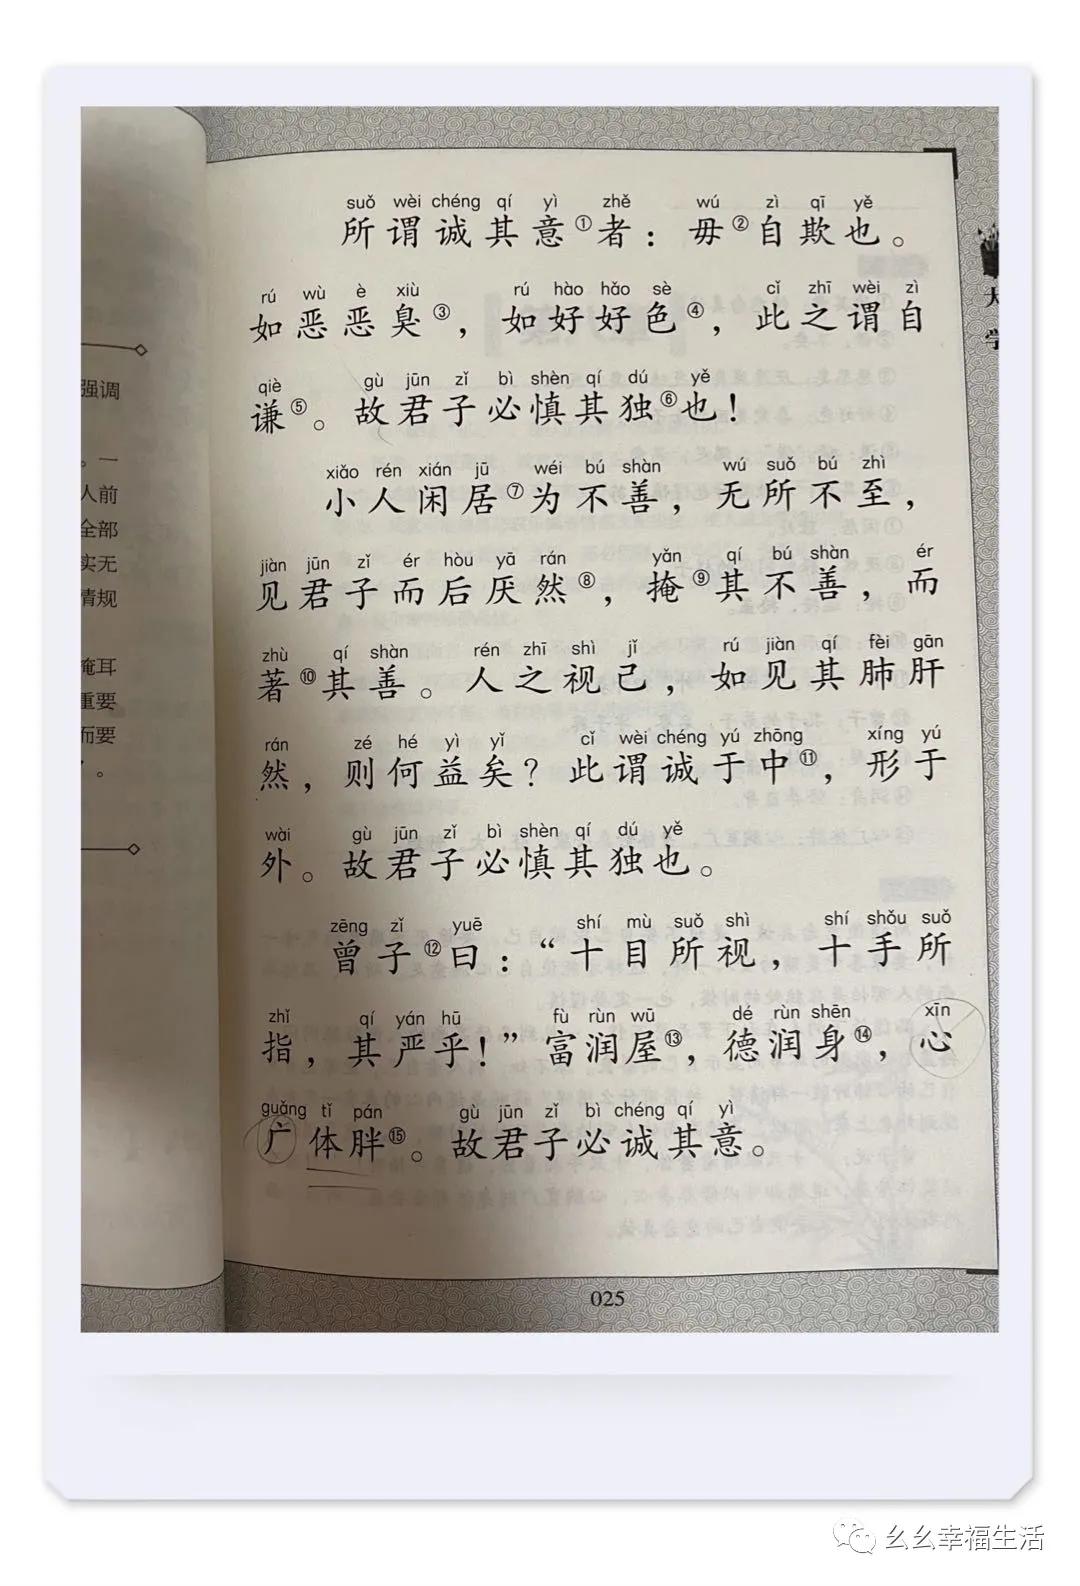 强调
。一
人前
全部
实无
情规
掩耳
重要
而要
。
suǒ wèi chéng qí yì zhě wú zì qī yě
所谓诚其意①者：毋②自欺也。
rú wù è xiù rú hào hǎo sè cǐ zhī wèi zì
如恶恶臭③，如好好色④，此之谓自
qiè gù jūn zǐ bì shèn qí dú yě
谦⑤。故君子必慎其独⑥也！
xiǎo rén xián jū wéi bú shàn wú suǒ bú zhì
小人闲居⑦为不善，无所不至，
jiàn jūn zǐ ér hòu yā rán yǎn qí bú shàn ér
见君子而后厌然⑧，掩⑨其不善，而
zhù qí shàn rén zhī shì jǐ rú jiàn qí fèi gān
著⑩其善。人之视己，如见其肺肝
rán zé hé yì yǐ cǐ wèi chéng yú zhōng xíng yú
然，则何益矣？此谓诚于中⑪，形于
wài gù jūn zǐ bì shèn qí dú yě
外。故君子必慎其独也。
zēng zǐ yuē shí mù suǒ shì shí shǒu suǒ
曾子⑫曰：“十目所视，十手所
zhǐ qí yán hū fù rùn wū dé rùn shēn xīn
指，其严乎！”富润屋⑬，德润身⑭，心
guǎng tǐ pán gù jūn zǐ bì chéng qí yì
广体胖⑮。故君子必诚其意。
大
学
025
幺幺幸福生活